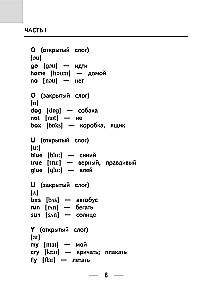 ЧАСТЬ I
O (открытый слог)
[əu]
go [gəu] — идти
home [həum] — домой
no [nəu] — нет
O (закрытый слог)
[ɒ]
dog [dɒg] — собака
not [nɒt] — не
box [bɒks] — коробка, ящик
U (открытый слог)
[u:]
blue [blu:] — синий
true [tru:] — верный, правдивый
glue [glu:] — клей
U (закрытый слог)
[ʌ]
bus [bʌs] — автобус
run [rʌn] — бегать
sun [sʌn] — солнце
Y (открытый слог)
[aɪ]
my [maɪ] — мой
cry [kraɪ] — кричать; плакать
fly [flaɪ] — летать